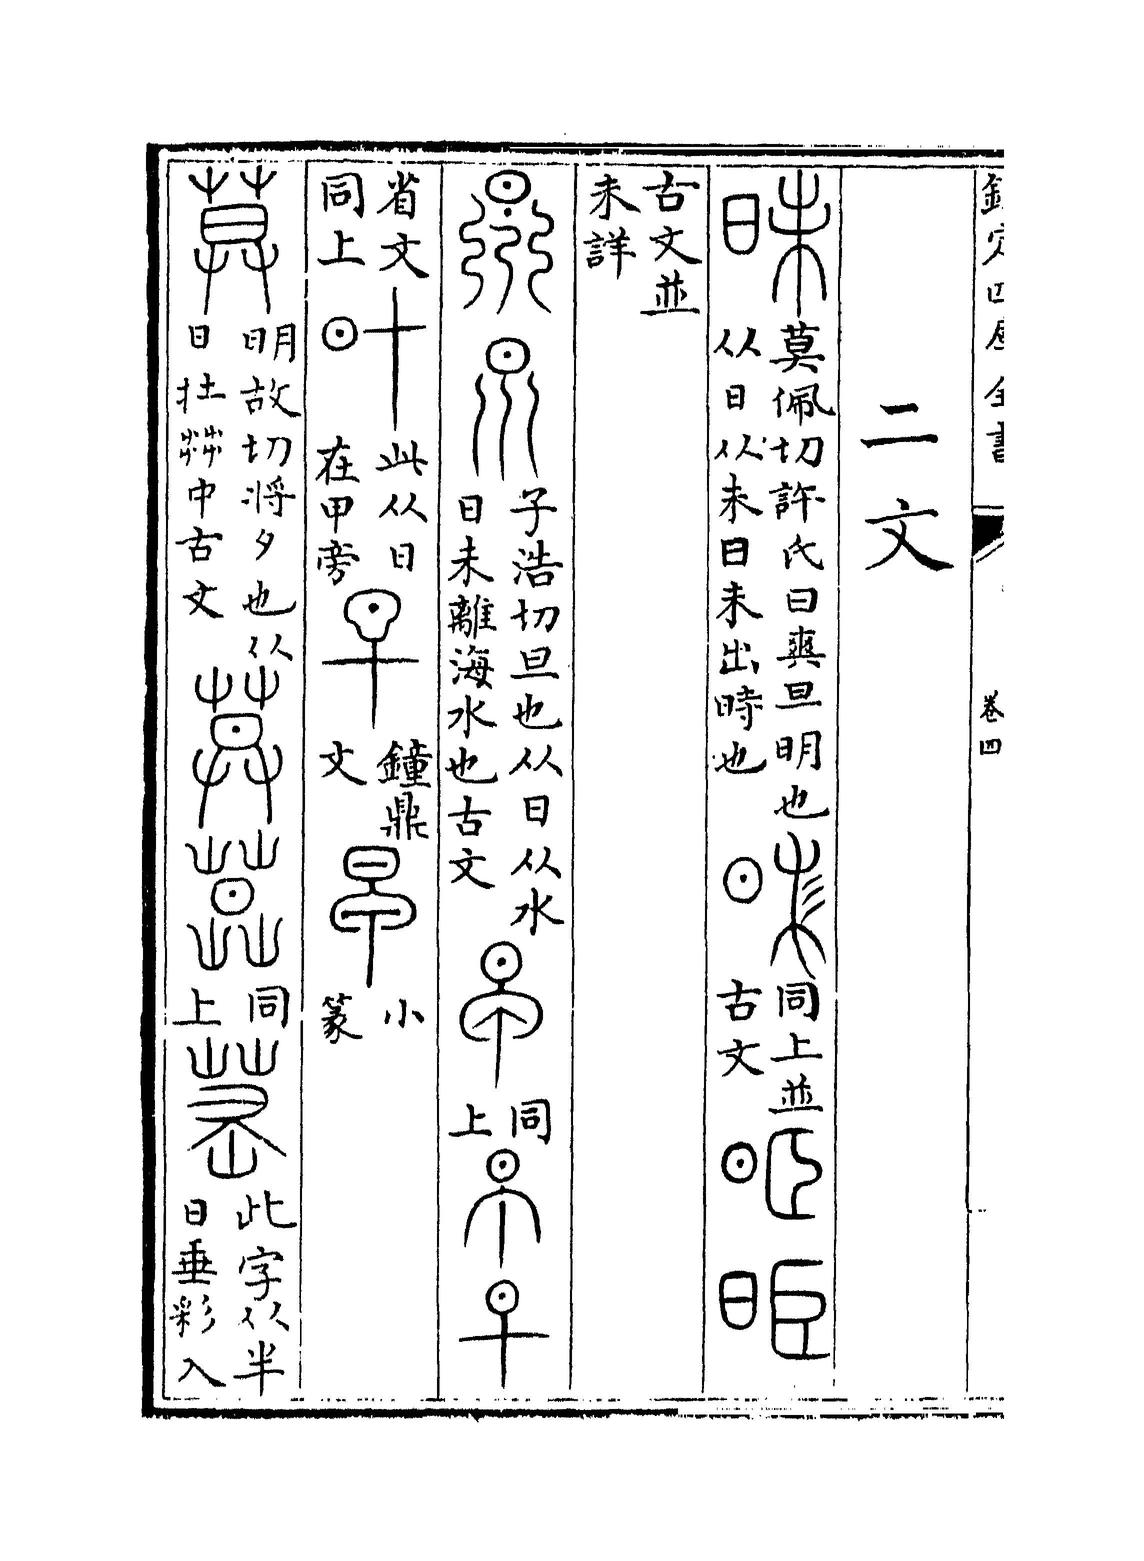 欽定四庫全書 卷四
二文
昧 莫佩切許氏曰爽旦明也从日从未日未出時也 昧 同上並古文
古文並未詳
子浩切旦也从日从水日未離海水也古文 同上
省文同上 此从日在甲旁 早 鐘鼎文 早 小篆
莫 明故切將夕也从日在茻中古文 莫 莫 同上 此字从半日垂彩入